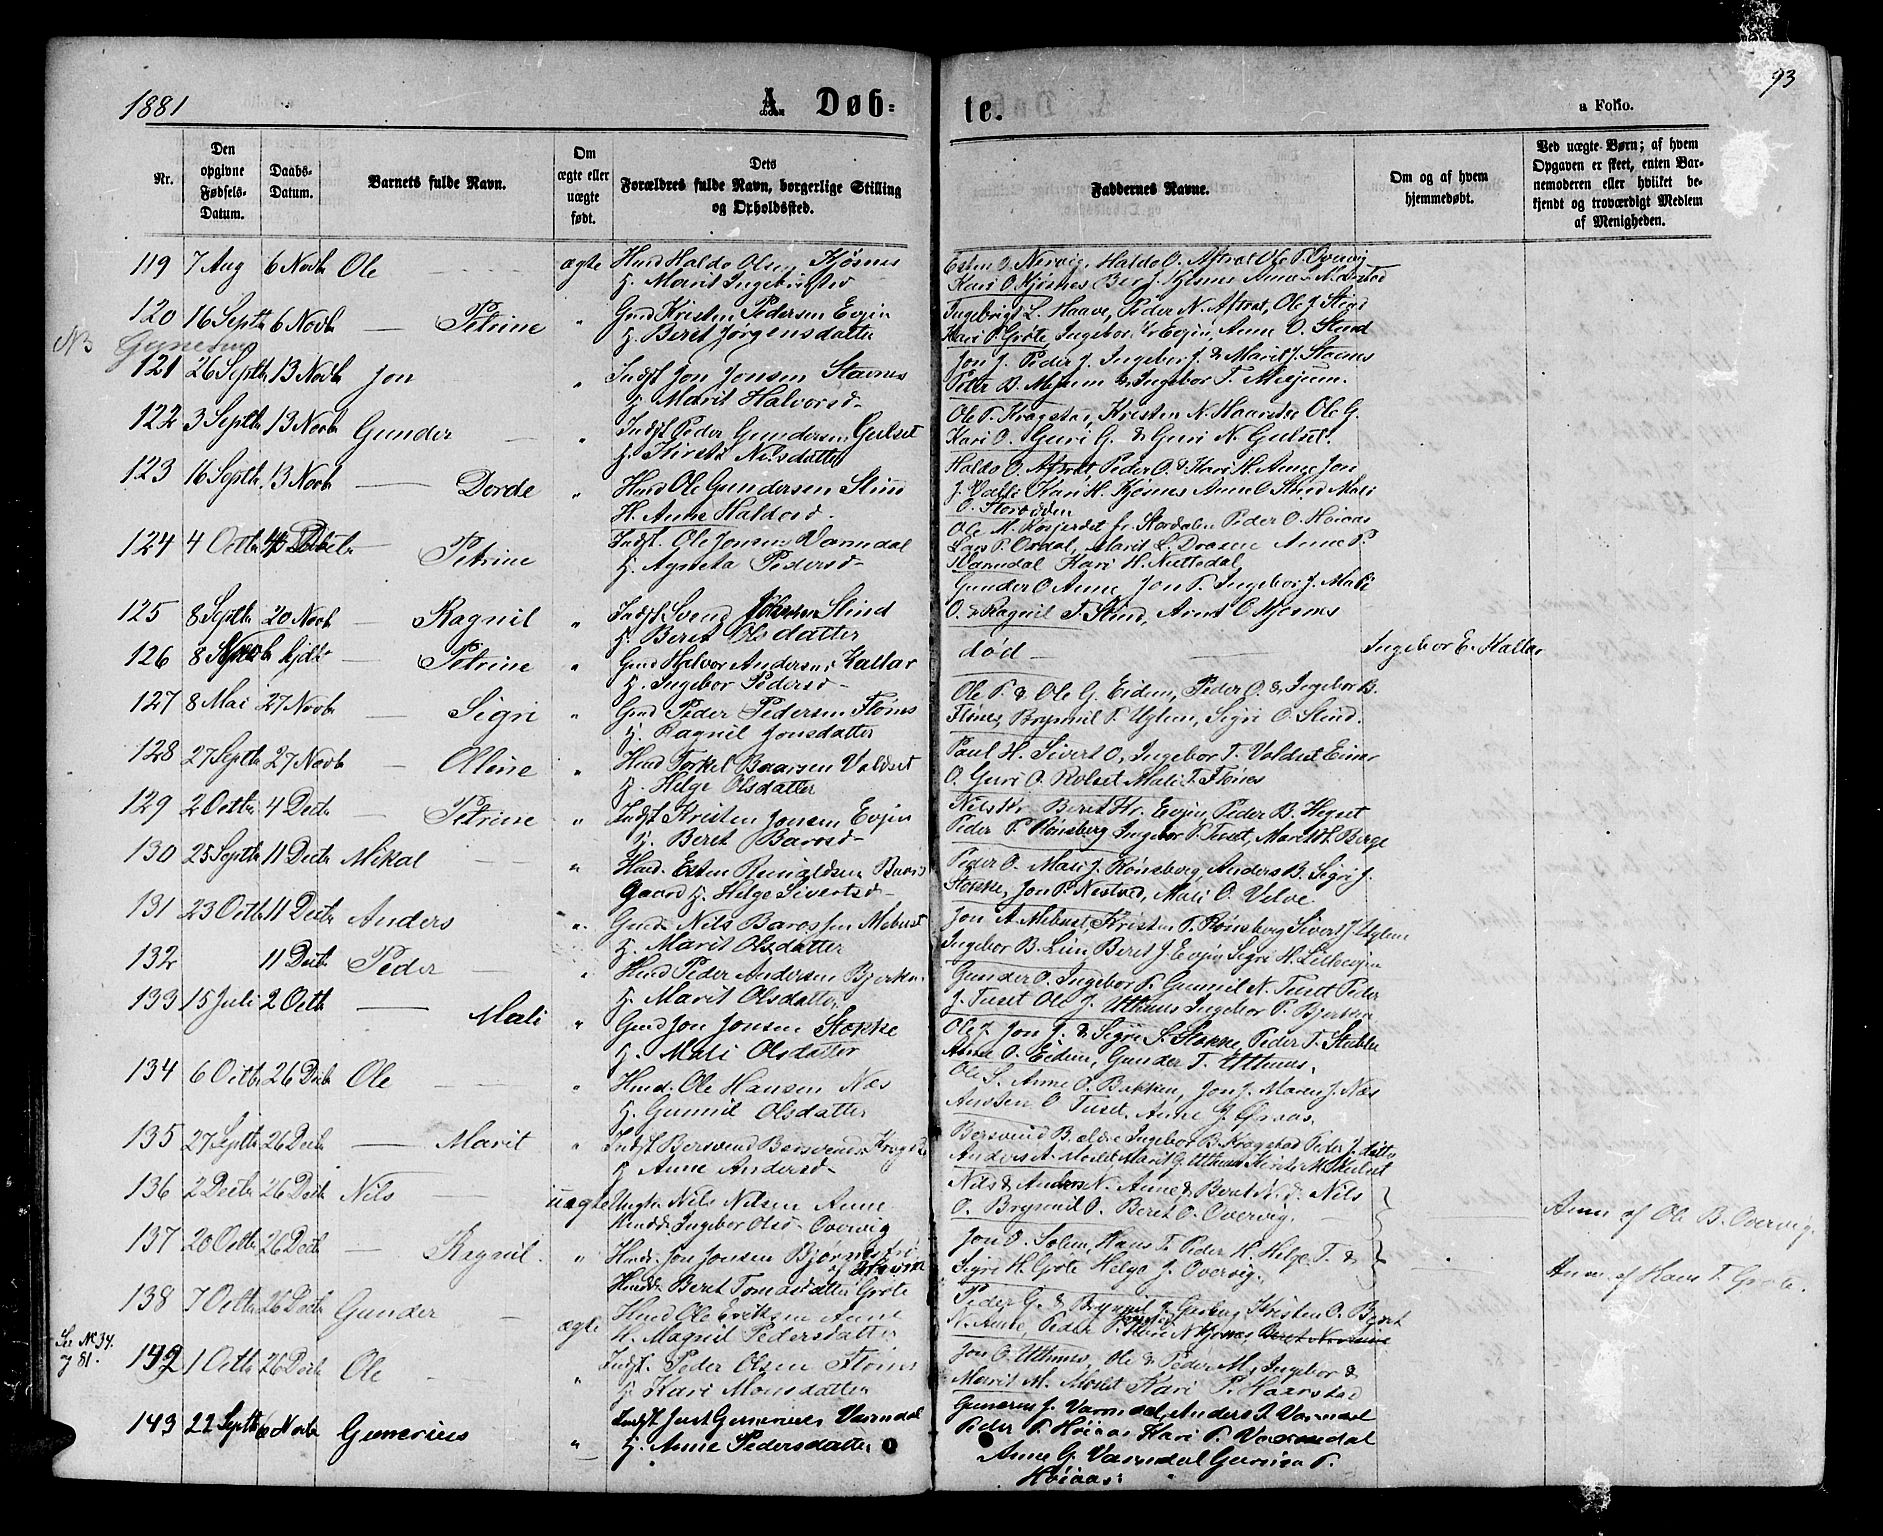 1881
A. Døb-
te.
93
a Folio.
Nr.
Den opgivne Fødsels-Datum.
Daabs-Datum.
Barnets fulde Navn.
Om ægte eller uægte født.
Dets Forældres fulde Navn, borgerlige Stilling og Opholdssted.
Faddernes Navne.
Om og af hvem hjemmedøbt.
Ved uægte Børn; af hvem Opgaven er skeet, enten Barnemoderen eller hvilket bekjendt og troværdigt Medlem af Menigheden.
119 7 Aug 6 Novb Ole ægte Huusd Haldo Olsen Kjøsnes
H. Marit Ingebrigtsd
Esten O. Nervig, Haldo O. Aftret Ole P. Overvig
Kari O. Kjøsnes Ber J. Kjøsnes Anne
120 16 Septbr 6 Novb — Petrine " Gmd Kristen Pedersen Evjen
H. Beret Jørgensdatter
Ingebrigt L. Haave, Peder N. Aftret, Ole J. Stind
Kari P. Grøte, Ingebor Evjen, Anne O. Stind
NB
121 26 Septbr 13 Novb Jon " Indst Jon Jonsen Stavnes
H. Marit Halvorsd-
Jon J. Peder J. Ingebor J. & Marit J. Stavnes
Peter B. Misjum & Ingebor T. Misjum.
122 3 Septbr 13 Novb Gunder — " Indst Peder Gundersen Gulset
H. Kirsti Nilsdatter
Ole P. Kragstad, Kristen N. Haarstad Ole G.
Kari O. Guri G. & Guri N. Gulset.
123 16 Septbr 13 Novb — Dorde " Huusd Ole Gundersen Stind
H. Anne Haldosd.
Haldo O. Aftret Peder O. & Kari H. Anne Jon
J. Valli Kari H. Kjøsnes Anne O. Stind Mali
O. Storøiden
124 4 Octbr — Petrine Indst. Ole Jonsen Varmdal
H. Agneta Pedersd-
Ole M. fr Stordalen Peder O. Høiaas
Lars P. Ordal, Marit L. Draxen Anne P.
Varmdal Kari H. Nettedal
125 8 Septbr 20 Novb — Ragnil " Indst Svend Stind
H. Beret Olsdatter
Gunder O Anne Jon P. Ingebor J. Mali
O. & Ragnil T. Stind, Anne O. Kjøsnes
126 8 hjdt — Petrine " Gmd Halvor Andersen Kallar
H. Ingebor Pedersd-
død —
Ingebor E. Kallar
127 8 Mai 27 Novb — Sigri " Gmd Peder Pedersen Fløines
H. Ragnil Jonsdatter
Ole P. & Ole G. Eidem, Peder O. & Ingebor B.
Fløines, Brynnil P. Uglem, Sigri O. Stind.
128 27 Septbr 27 Novb — Oline " Huusd Torkel Baarsen Valdset
H. Helge Olsdatter
Paul H. Sivert O, Ingebor T. Valdset Einer
O. Guri O. Rolset Mali T. Fløines
129 2 Octbr 4 Decbr — Petrine " Indst Kristen Jonsen Evjen
H. Beret Baarsd-
Nils Kr. Beret Kr. Evjen Peder B. Hegset
Peder P. Rønsberg Ingebor P. Tuset, Marit H. Berge
130 25 Septbr 11 Decbr Mikal — " Huusd. Esten Reinaldsen
Gaard H. Helge Sivertsd-
Peder O. Mali J. Rønsberg, Anders B. Sigri J.
Stokke, Jon P. Nestvod, Mali O. Velve
131 23 Octbr 11 Decbr Anders " Gmd Nils Baarssen Mebust
H. Marit Olsdatter
Jon A. Mebust, Kristen P. Rønsberg Sivert J. Uglem
Ingebor B. Lien Beret J. Evjen Sigri H. Lilleevjen
132 11 Decbr Peder — " Huusd Peder Andersen Bjerken
H. Marit Olsdatter
Gunder O. Ingebor P. Gunnil N. Tuset Peder
J. Tuset Ole J. Uthuus Ingebor P. Bjerken
133 15 Juli 2 Octb — Mali " Gmd Jon Jonsen Stokke
H. Mali Olsdatter
Ole J. Jon J. & Sigri S. Stokke, Peder T. Stubbe
Anne O. Eidem, Gunder T. Uthuus.
134 6 Octbr 26 Decb Ole " Huusd. Ole Hansen Næs
H. Gunnil Olsdatter
Ole S. Anne O. Bakken, Jon J. Maren J. Næs
Austen O Tuset. Anne J. Graas.
135 27 Septbr 26 Decb — Marit " Indst Bersvend Bersvendsen Kragst
H. Anne Andersd-
Bersvend B. ældre Ingebor B. Kragstad Peder J. ditto
Anders A. Moslet, Marit G. Uthuus
136 2 Decbr 26 Decb Nils — uægte Ungkr Nils Nilsen Aune
Huusdd. Ingebor Olsd- Overvig
Nils & Anders N. Aune, & Beret N. d. Nils
O. Brynnil O. Beret O. Overvig.
Anm. af Ole B. Overvig.
137 20 Octbr 26 Decb — Ragnil. " Huusd. Jon Jonsen
Huusdd. Beret Tomasdatter Grøte
Jon O. Solem, Hans T. Peder H. Helge T. &
Sigri H. Grøte Helge J. Overvig.
Anm. af Hans T. Grøte.
138 7 Octbr 26 Decb Gunder — ægte Huusd Ole Eriksen Aune
H. Magnil Pedersdatter
Peder G. & Brynnil J. Kristen O.
N. Aune, Peder P. Kari N. Kjøsnes Beret N. Aune
See No 34. 81.
142 1 Octbr 26 Decb Ole " Indst. Peder Olsen Fløines
H. Kari Monsdatter
Jon O. Uthuus, Ole & Peder M, Ingebor &
Marit M. Moslet Kari P. Haarstad
143 22 Septbr 6 Novbr Gunerius " Indst. Just Gunerius Varmdal
H. Anne Pedersdatter
Gunerius J. Varmdal, Anders J. Varmdal
Peder P. Høiaas Kari P. Varmdal
Anne G. Varmdal Gurina P.
Høiaas: